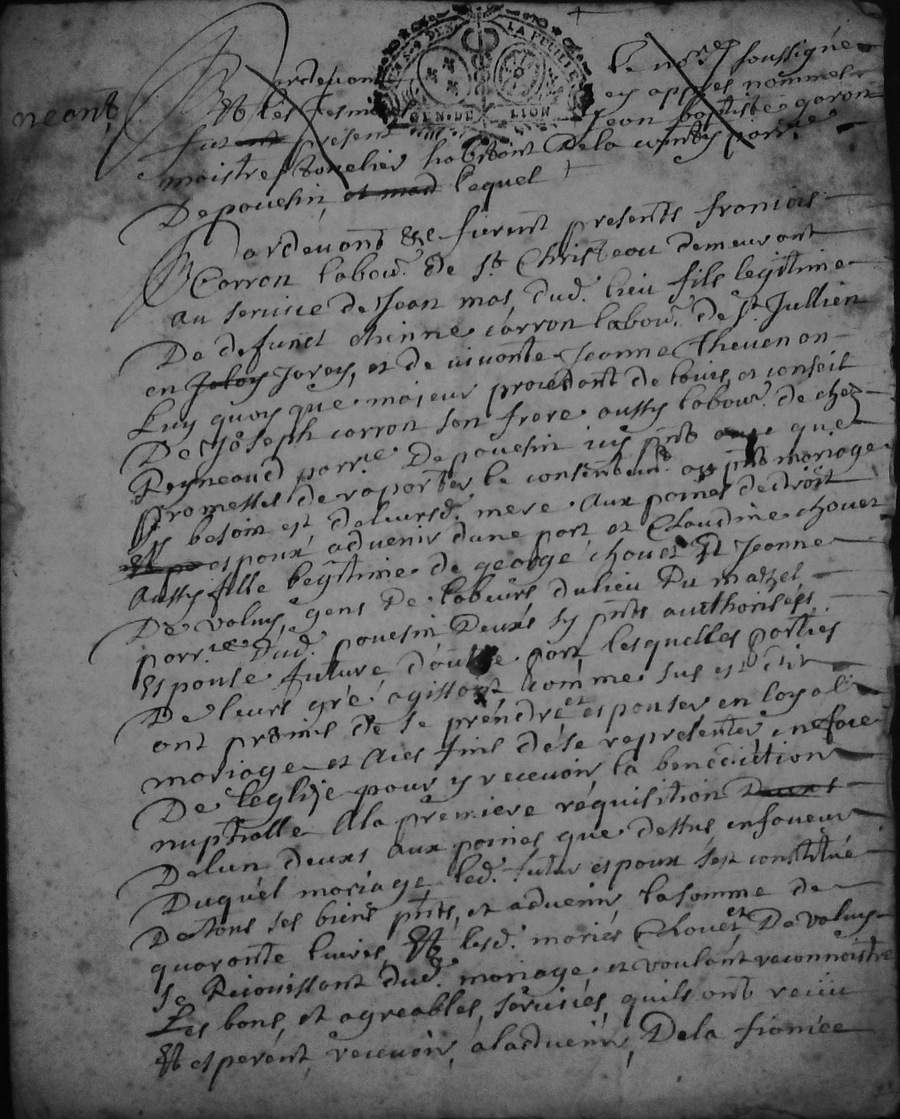 neant
Pardevant le no.re soussigné
Et les tesmo ey appres nommes
fut present Jean baptiste garon
maistre tonelier habitant de la parr.e
De pouesin, lequel
Pardevant &c furent presents francois
Carron labou.r de S.t Christeau demeurant
au service de Jean mas dud. lieu fils legitime
De defunct etienne carron labou.r de S.t Jullien
en Jarey, et de vivante Jeanne thevenon
Luy quoy que majeur procedant de lavis et conseil
De Joseph carron son frere aussy labou.r de chez
Reyneaud parr.e De pouesin icy pnt que
promettes de raporter le consentem.t au pnt mariage
sy besoin est de leurd. mere aux peines de droit
espoux advenir dune part, et Claudine chouet
aussy fille legitime de george chouet Et Jeanne
De valuy, gens de labeurs du lieu Du mazel
parr.e dud. pouesin Deux sy pnts authorisés
Espouse future dautre part lesquelles parties
De leurs gré agissant comme sus est dit
ont promis de se prendre et espouser en loyal
mariage et aces fins de se representer en face
De leglize pour y recevoir la benediction
nuptialle a la premiere requisition
De lun deux aux peines que dessus en faveur
Duquel mariage led. futur espoux sest constitué
De tous ses biens pnts, et advenir la somme de
quarante livres, Et lesd. mariés Chouet, et De valuy
se Rejouissant dud. mariage et voulant reconnoistre
Les bons, et agreables, services, quils ont receu
Et esperent, recevoir, a ladvenir, De la fiancée
GEN. DE LION
LA FEUILLE